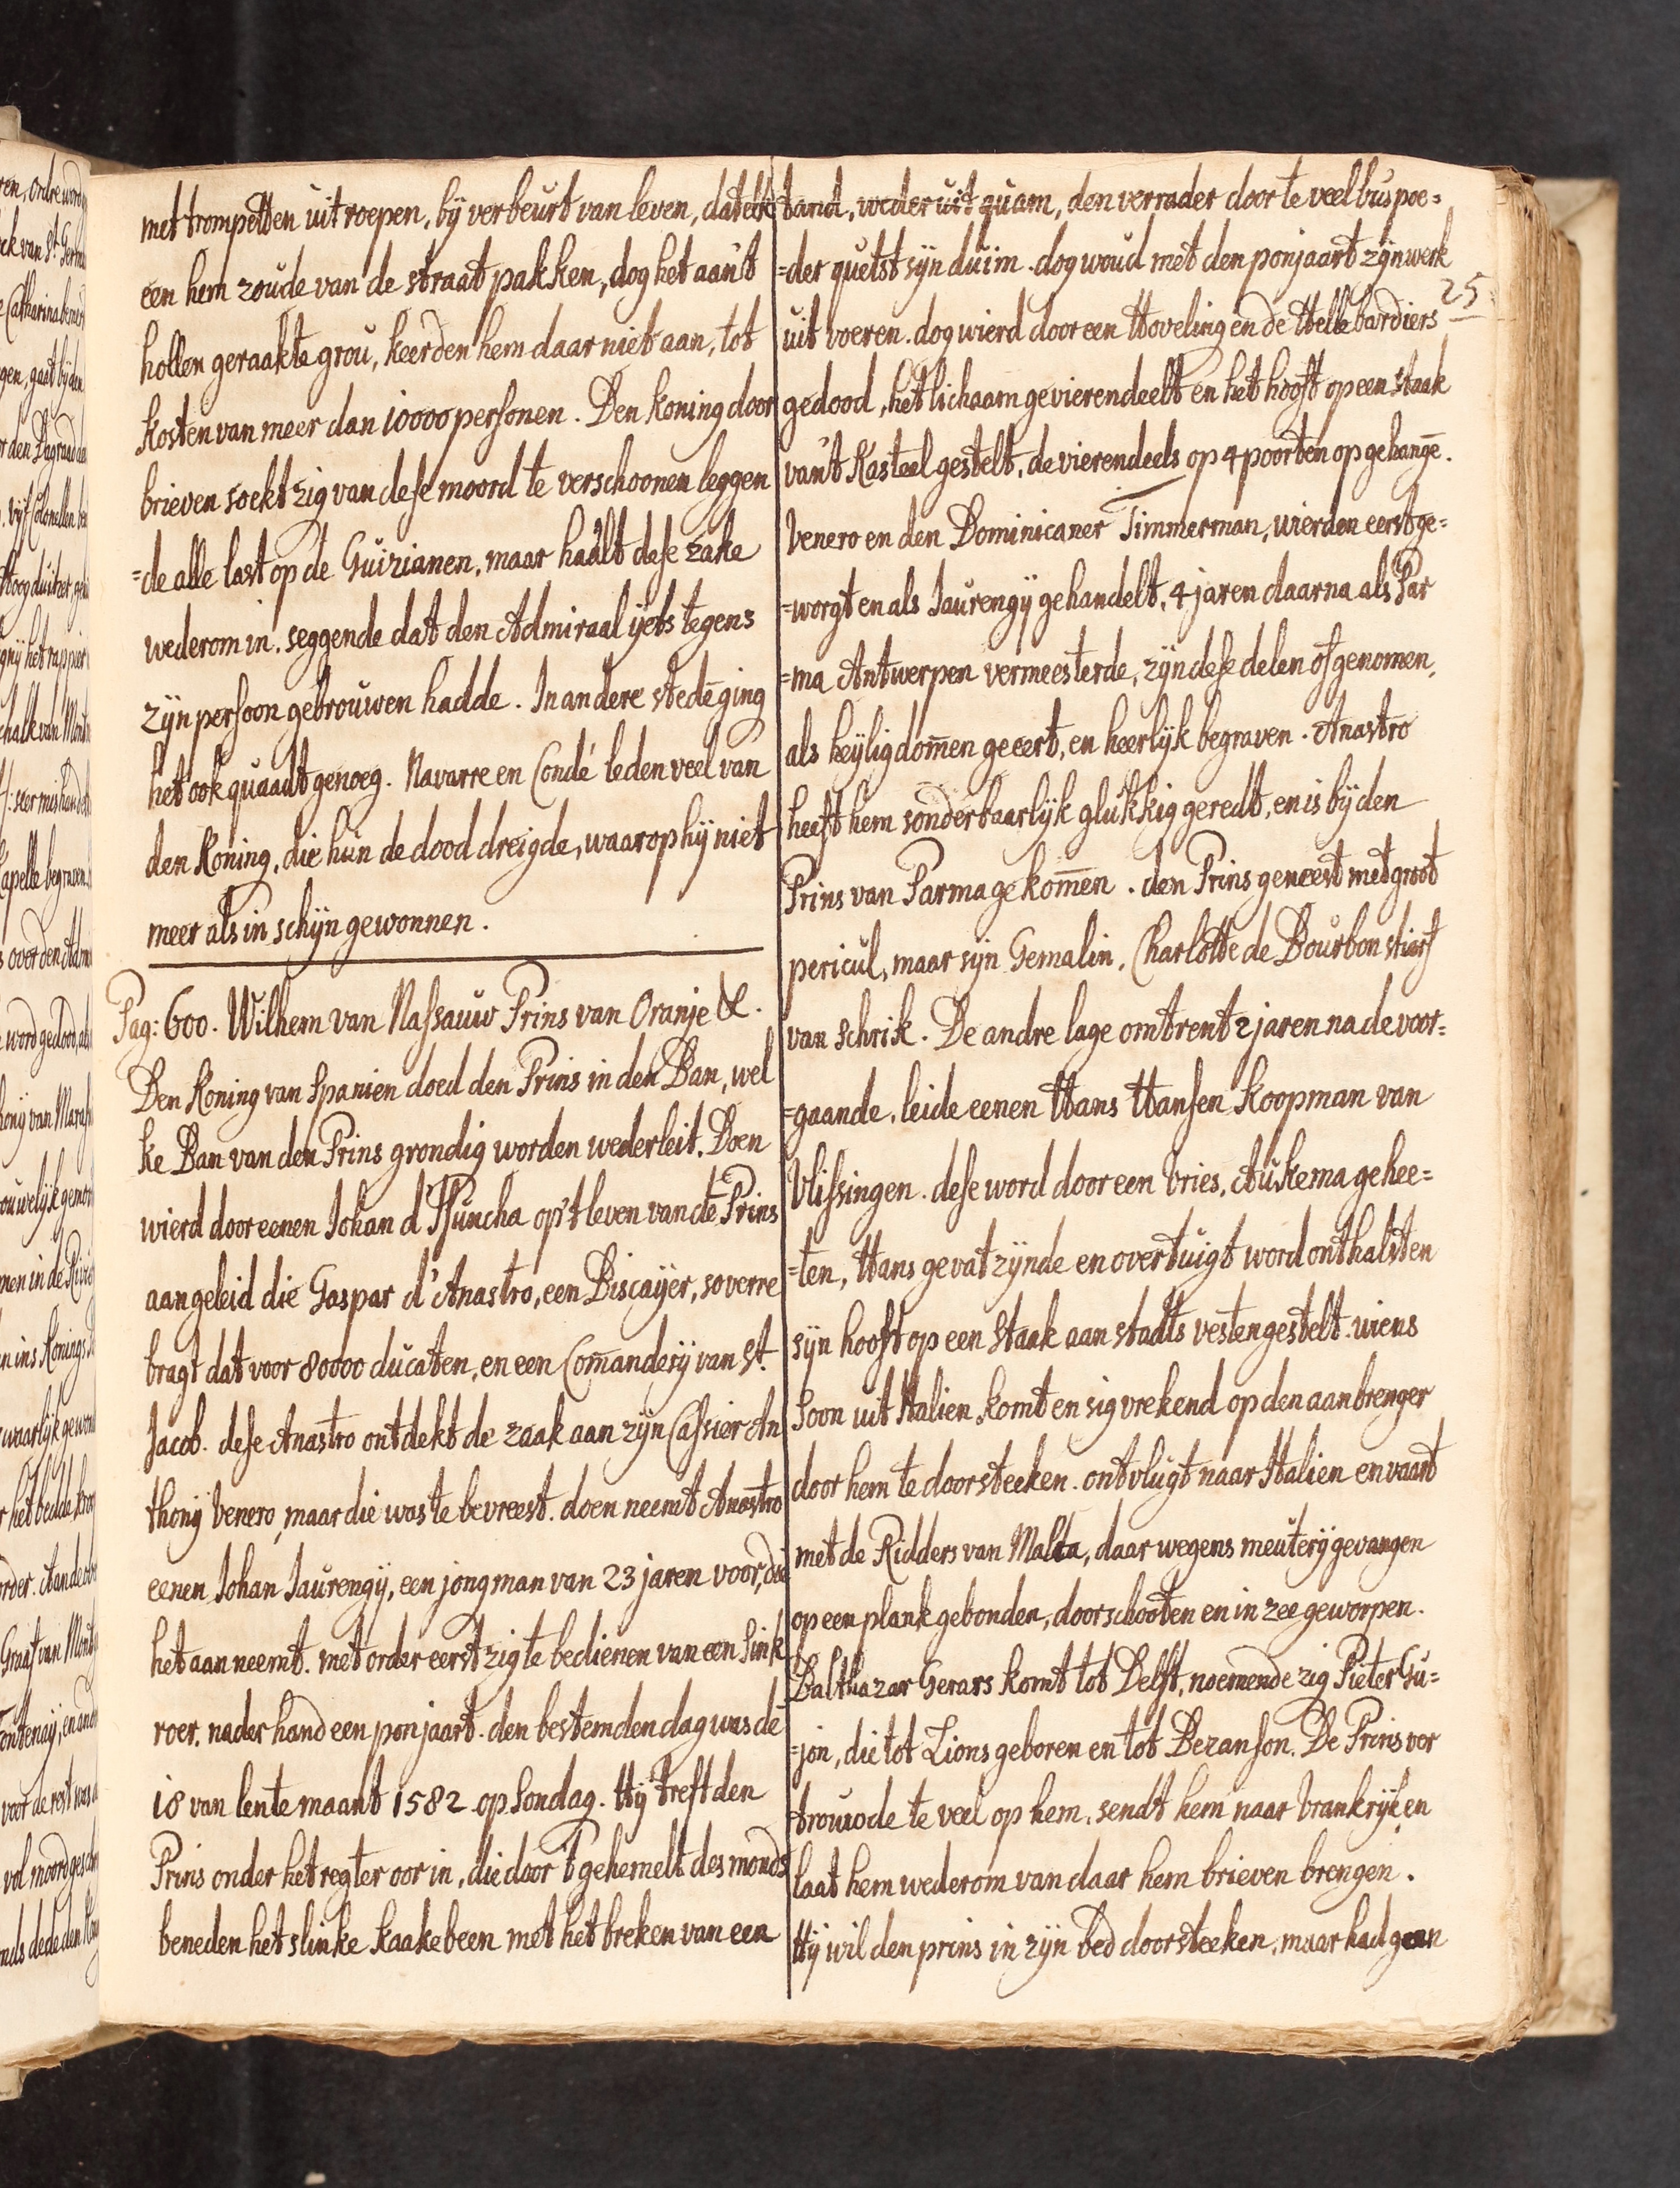 met trompetten uit roepen, bij verbeurt van leven, dat elk
een hem zoude van de straat pakken, dog het aan't
hollen geraakte grou, keerden hem daar niet aan, tot
kosten van meer dan 10000 persoonen. Den koning door
brieven soekt zig van dese moord te verschoonen leggen
=de alle last op de Guizianen, maar haalt dese zake
wederom in. seggende dat den Admiraal ijets tegens
zijn persoon gebrouwen hadde. In andere stedē ging
het ook quaadt genoeg. Navarre en Condé leden veel van
den Koning, die hun de dood dreigde, waar op hij niet
meer als in schijn gewonnen.
Pag: 600. Wilhem van Nassauw Prins van Oranje &c.
Den Koning van Spanien doed den Prins in den Ban, wel
ke Ban van den Prins grondig worden wederleit. Doen
wierd door eenen Johan d'Ysuncha op't leven van dē Prins
aangeleid die Gaspar d'Anastro, een Biscayer, so verre
bragt dat voor 80000 ducaten, en een Com̄anderij van St.
Jacob. dese Anastro ontdekt de zaak aan zijn Cassier An
thonij Venero, maar die was te bevreest. doen neemt Anastro
eenen Johan Jaurengij, een jongman van 23 jaren voor, die
het aan neemt. met order eerst zig te bedienen van een sink
roer. nader hand een ponjaart. den bestemden dag was de
18 van lente maant 1582 op Sondag. Hij treft den
Prins onder het regter oor in, die door 't gehemelt des monds
beneden het slinke kaakebeen met het breken van een
tand, weder uit quam, den verrader door te veel buspoe=
=der quetst sijn duim. dog woud met den ponjaart zijn werk
25
uit voeren. dog wierd door een Hoveling en de Hellebardiers
gedood, het lichaam gevierendeelt en het hooft op een staak
van't Kasteel gestelt, de vierendeels op 4 poorten opgehangē.
Venero en den Dominicaner Timmerman, wierden eerst ge=
=worgt en als Jaurengij gehandelt, 4 jaren daarna als Par
=ma Antwerpen vermeesterde, zijn dese delen afgenomen,
als heijligdom̄en geeert, en heerlijk begraven. Anastro
heeft hem sonderbaarlijk glukkig geredt, en is bij den
Prins van Parma gekom̄en. den Prins geneest met groot
pericul, maar sijn Gemalin, Charlotte de Bourbon stierf
van schrik. De andre lage omtrent 2 jaren na de voor=
=gaande, leide eenen Hans Hansen Koopman van
Vlissingen. dese word door een Vries, Aukema gehee=
=ten, Hans gevat zijnde en overtuigt word onthalst en
sijn hooft op een Staak aan stadts vesten gestelt. wiens
Soon uit Italien komt en sig vrekend op den aanbrenger
door hem te doorsteeken. ontvlugt naar Italien en vaart
met de Ridders van Malta, daar wegens meuterij gevangen
op een plank gebonden, doorschooten en in zee geworpen.
Balthazar Gerars komt tot Delft, noemende zig Pieter Gu=
=jon, die tot Lions geboren en tot Bezanson. De Prins ver
trouwde te veel op hem, sendt hem naar Vrankrijk, en
laat hem wederom van daar hem brieven brengen.
Hij wil den prins in zijn bed doorsteeken, maar had geen